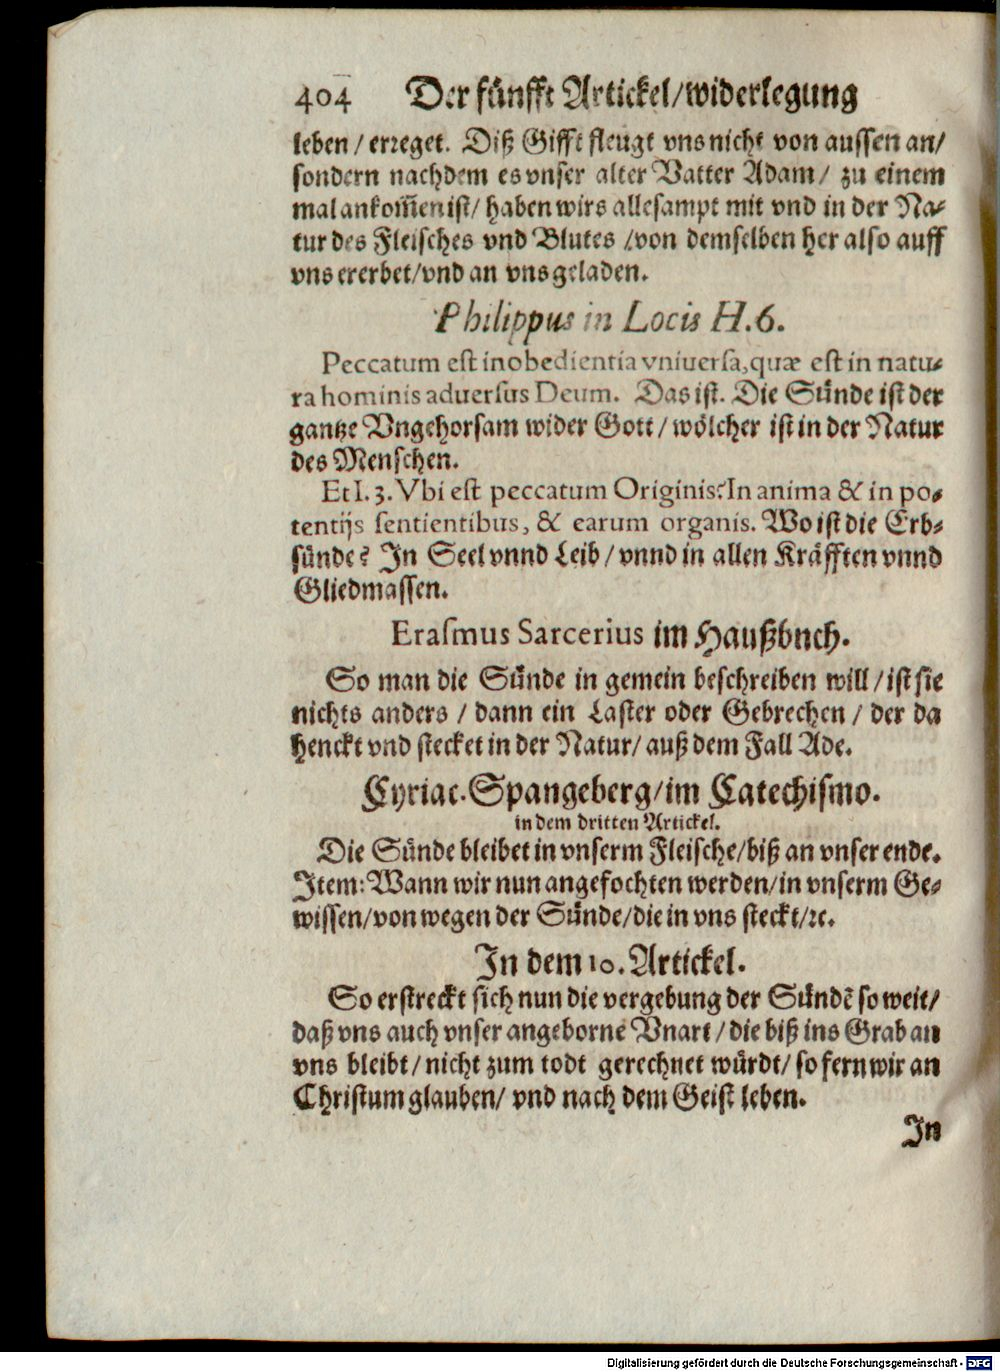 404 Der fünfft Artickel/widerlegung
leben / erreget. Diß Gifft fleugt vns nicht von aussen an/
sondern nachdem es vnser alter Vatter Adam / zu einem
mal ankom̃en ist/ haben wirs allesampt mit vnd in der Na-
tur des Fleisches vnd Blutes /von demselben her also auff
vns ererbet/vnd an vns geladen.
Philippus in Locis H.6.
Peccatum est inobedientia vniuersa,quæ est in natu-
ra hominis aduersus Deum. Das ist. Die Sünde ist der
gantze Vngehorsam wider Gott / wölcher ist in der Natur
des Menschen.
Et I. 3. Vbi est peccatum Originis? In anima & in po-
tentijs sentientibus, & earum organis. Wo ist die Erb-
sünde? In Seel vnnd Leib / vnnd in allen Kräfften vnnd
Gliedmassen.
Erasmus Sarcerius im Haußbuch.
So man die Sünde in gemein beschreiben will / ist sie
nichts anders / dann ein Laster oder Gebrechen / der da
henckt vnd stecket in der Natur/ auß dem Fall Ade.
Cyriac. Spangeberg/im Catechismo.
in dem dritten Artickel.
Die Sünde bleibet in vnserm Fleische/biß an vnser ende.
Item: Wann wir nun angefochten werden/in vnserm Ge-
wissen/von wegen der Sünde/die in vns steckt/ꝛc.
In dem 10. Artickel.
So erstreckt sich nun die vergebung der Sündẽ so weit/
daß vns auch vnser angeborne Vnart / die biß ins Grab an
vns bleibt / nicht zum todt gerechnet würdt/ so fern wir an
Christum glauben/ vnd nach dem Geist leben.
In
Digitalisierung gefördert durch die Deutsche Forschungsgemeinschaft - DFG